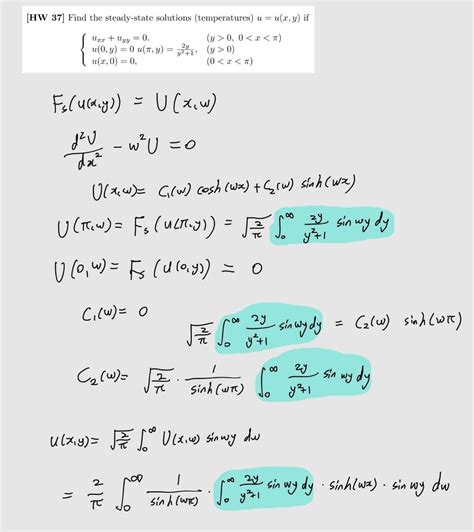 [HW 37] Find the steady-state solutions (temperatures) u = u(x, y) if
{ u_xx + u_yy = 0, (y > 0, 0 < x < π)
u(0, y) = 0 u(π, y) = 2y/(y²+1), (y > 0)
u(x, 0) = 0, (0 < x < π)
Fs(u(x,y)) = U(x,w)
d²U/dx² - w²U = 0
U(x,w) = C₁(w) cosh(wx) + C₂(w) sinh(wx)
U(π,w) = Fs(u(π,y)) = √(2/π) ∫₀^∞ 2y/(y²+1) sin wy dy
U(0,w) = Fs(u(0,y)) = 0
C₁(w) = 0
√(2/π) ∫₀^∞ 2y/(y²+1) sin wy dy = C₂(w) sinh(wπ)
C₂(w) = √(2/π) · 1/sinh(wπ) ∫₀^∞ 2y/(y²+1) sin wy dy
u(x,y) = √(2/π) ∫₀^∞ U(x,w) sin wy dw
= 2/π ∫₀^∞ 1/sinh(wπ) · ∫₀^∞ 2y/(y²+1) sin wy dy · sinh(wx) · sin wy dw